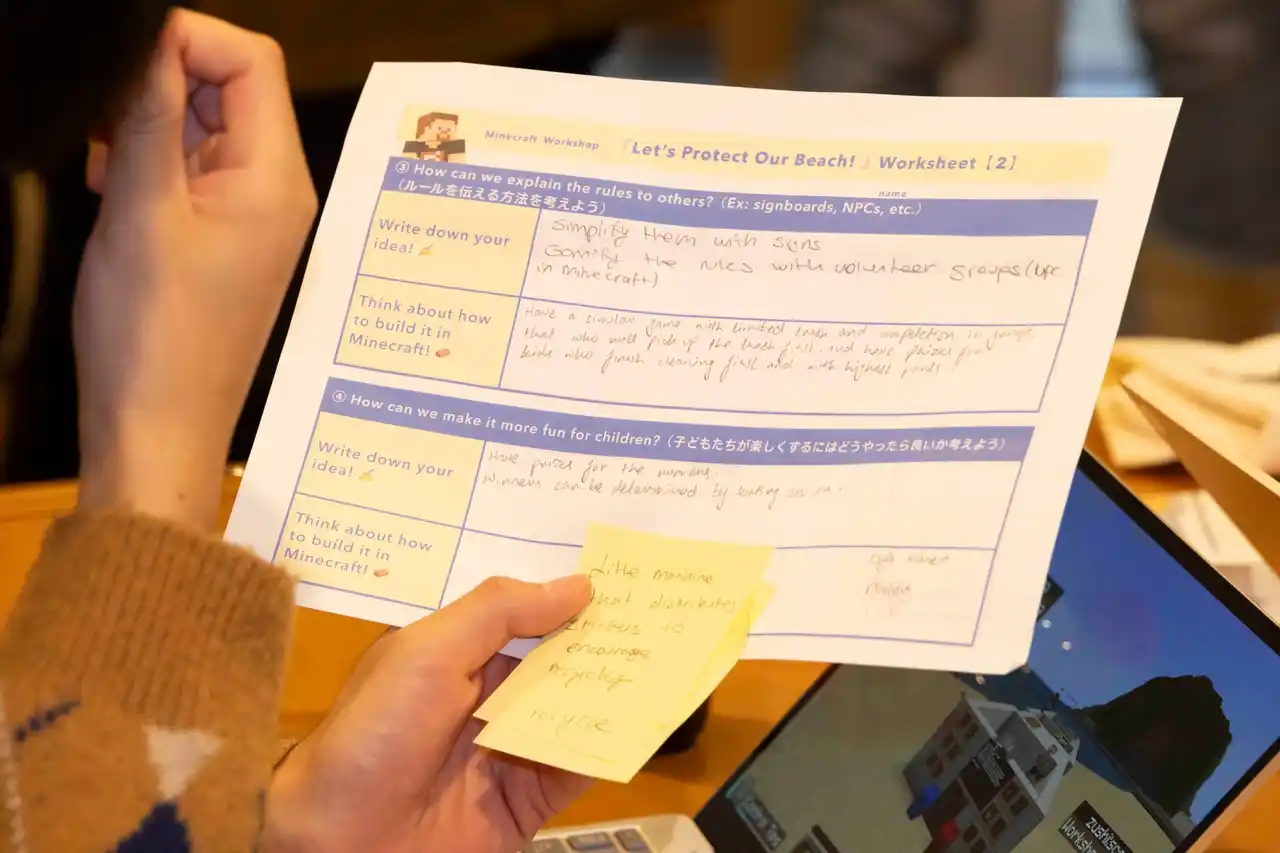 Minecraft Workshop 『Let's Protect Our Beach!』 Worksheet【2】
name
③ How can we explain the rules to others? (Ex: signboards, NPCs, etc.)
（ルールを伝える方法を考えよう）
Write down your
idea!
Simplify them with signs
Gamify the rules with volunteer groups (npc
in Minecraft)
Think about how
to build it in
Minecraft!
Have a similar game with limited trash and competition in groups,
that who will pick up the trash first, and have prizes for
kids who finish cleaning first and with highest points.
④ How can we make it more fun for children?（子どもたちが楽しくするにはどうやったら良いか考えよう）
Write down your
idea!
Have prizes for the winners.
Winners can be determined by
Think about how
to build it in
Minecraft!
Little machine
that distributes
stickers to
encourage
recycle